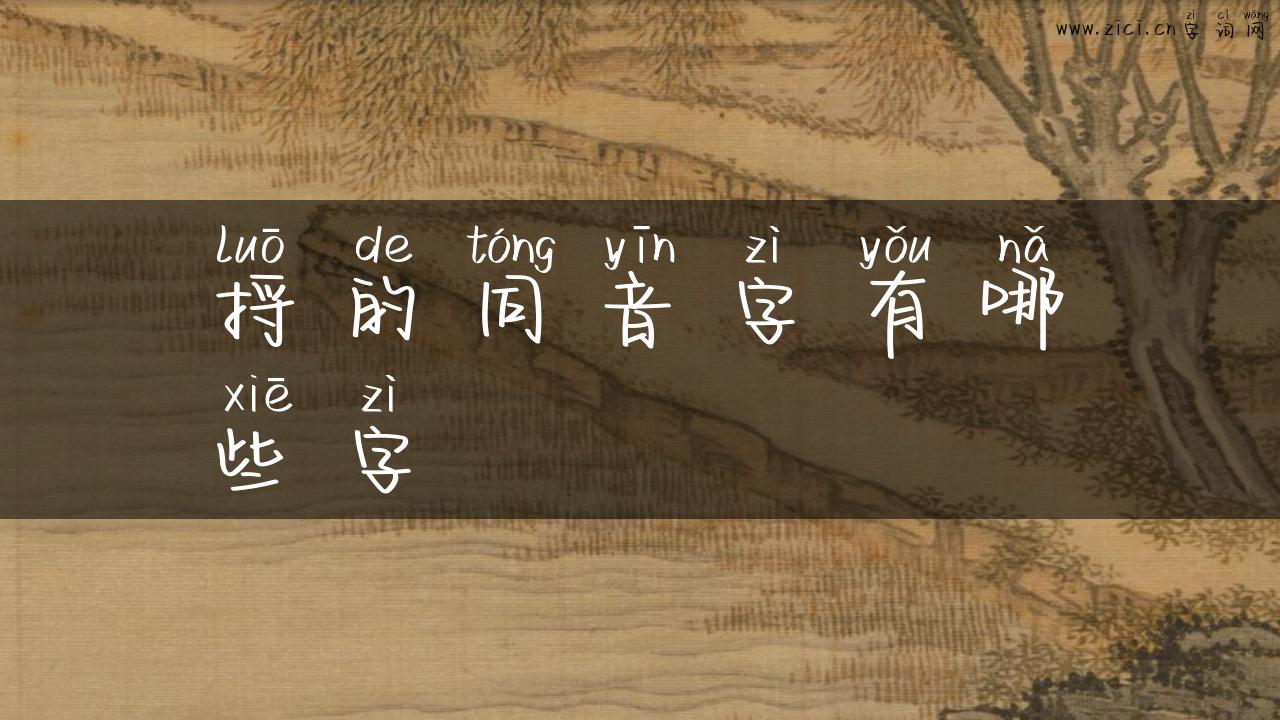 zì cí wǎng
www.zici.cn字词网
luō de tóng yīn zì yǒu nǎ
捋的同音字有哪
xiē zì
些字